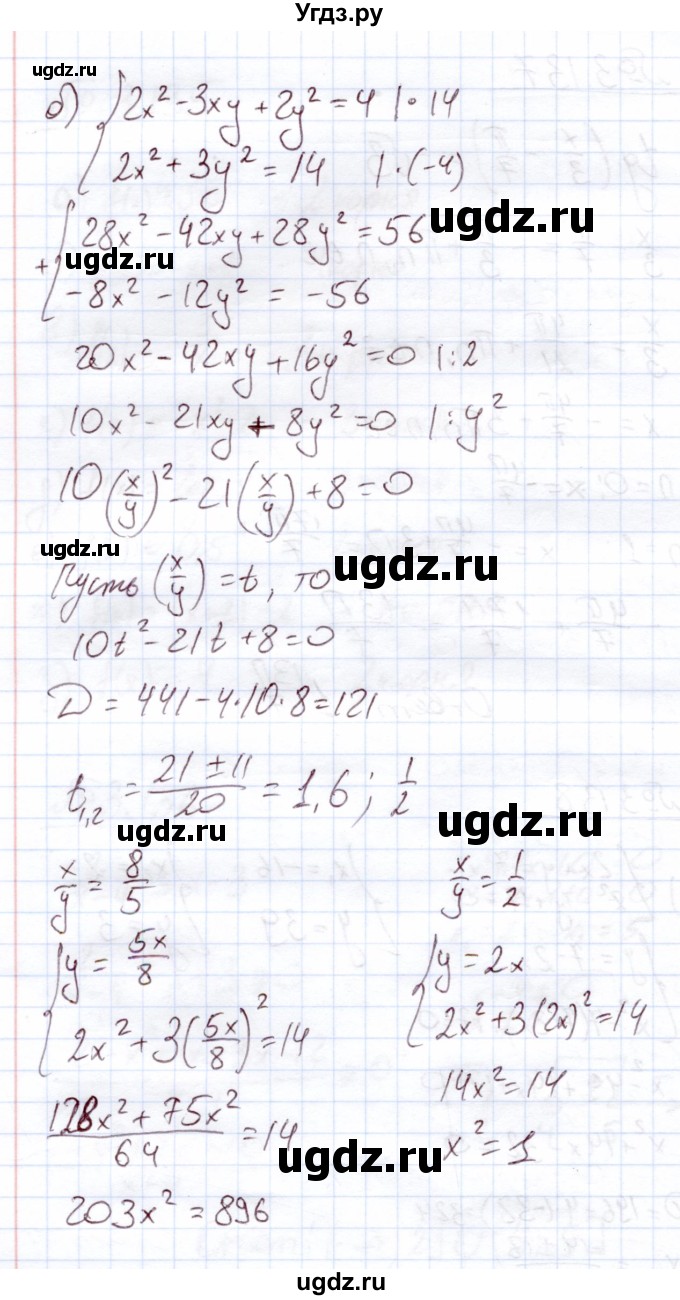 Угдз.ру
ugdz.ru
б) { 2x² - 3xy + 2y² = 4 | · 14
2x² + 3y² = 14 | · (-4)
ugdz.ru
+ { 28x² - 42xy + 28y² = 56
ugdz.ru
-8x² - 12y² = -56
20x² - 42xy + 16y² = 0 | : 2
10x² - 21xy + 8y² = 0 | : y²
10(x/y)² - 21(x/y) + 8 = 0
ugdz.ru
Пусть (x/y) = t, то
ugdz.ru
10t² - 21t + 8 = 0
D = 441 - 4·10·8 = 121
t₁,₂ = (21 ± 11)/20 = 1,6 ; 1/2
ugdz.ru
ugdz.ru
x/y = 8/5
{ y = 5x/8
2x² + 3(5x/8)² = 14
(128x² + 75x²)/64 = 14
203x² = 896
x/y = 1/2
{ y = 2x
2x² + 3(2x)² = 14
14x² = 14
x² = 1
ugdz.ru
ugdz.ru